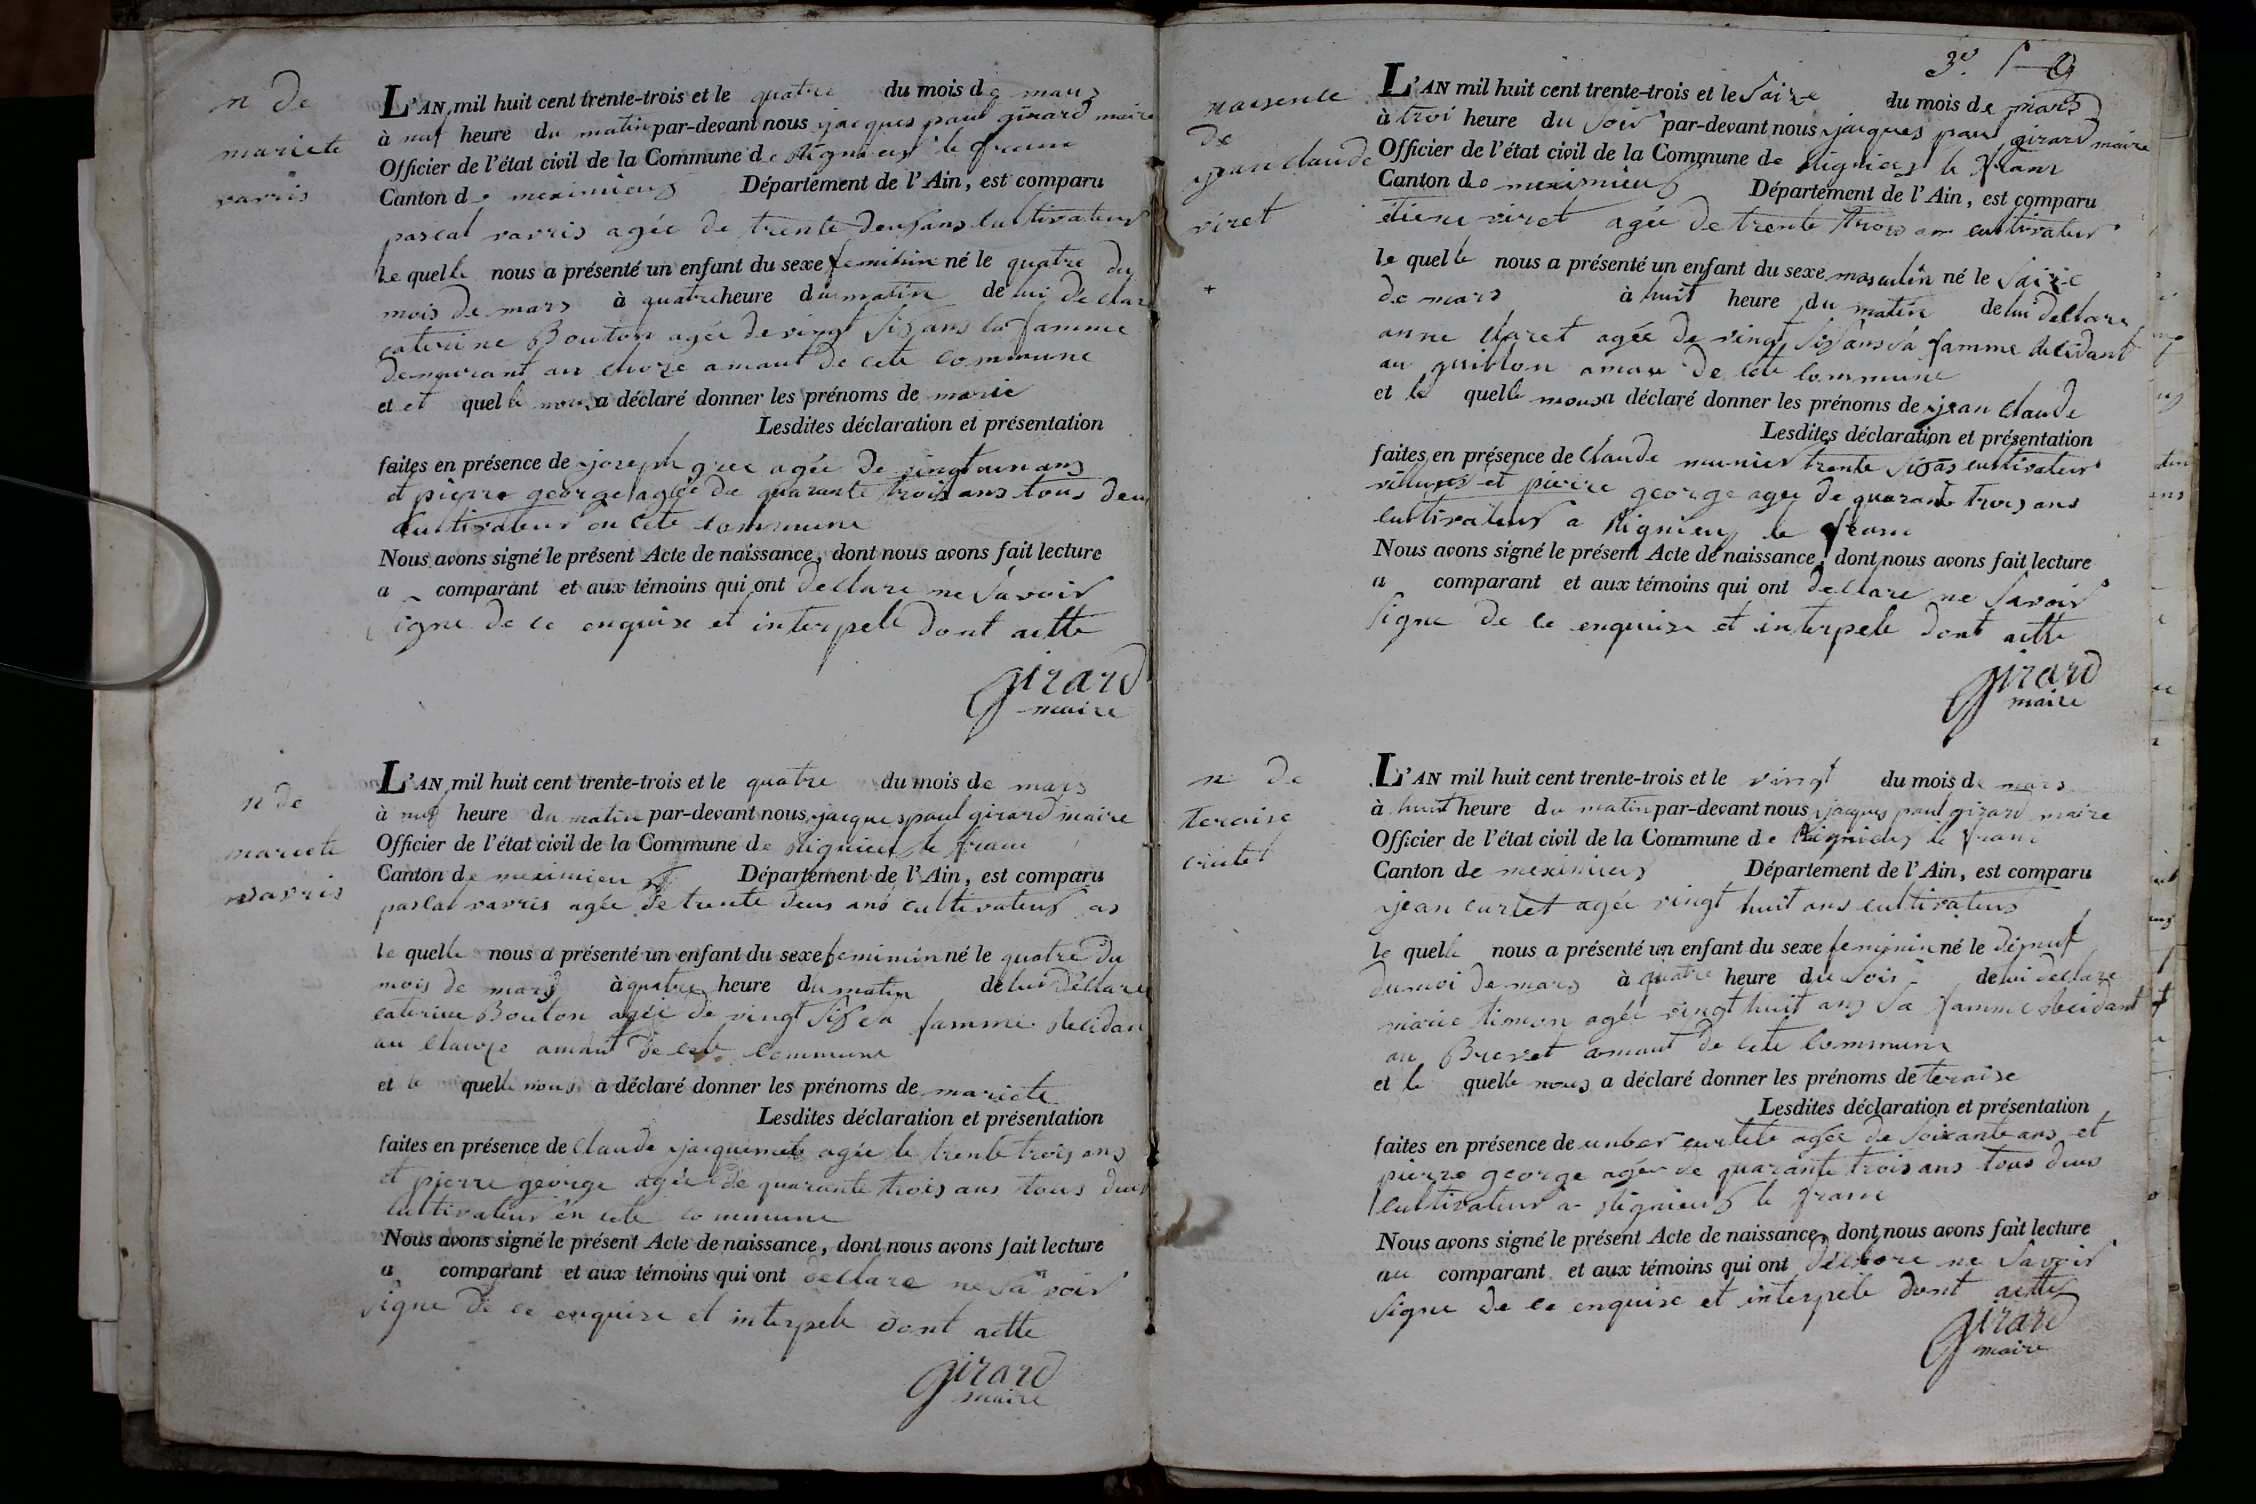 n de
mariete
varris
L'AN mil huit cent trente-trois et le quatre du mois de mars
à nuf heure du matin par-devant nous jacques paul girard maire
Officier de l'état civil de la Commune de Rignieux le franc
Canton de meximieux Département de l'Ain, est comparu
pascal varris agée de trente deux ans cultivateur
le quelle nous a présenté un enfant du sexe feminin né le quatre du
mois de mars à quatre heure du matin de lui déclare
caterine Bouton agée de vingt six ans la famme
demeurant au amant de cete commune
et quelle nous a déclaré donner les prénoms de marie
Lesdites déclaration et présentation
faites en présence de joseph agée de ans
et pierre george agée de quarante trois ans tous deux
cultivateur en cete commune
Nous avons signé le présent Acte de naissance, dont nous avons fait lecture
a comparant et aux témoins qui ont declare ne savoir
signe de ce enquise et interpele dont actte
girard
maire
n de
mariete
varris
L'AN mil huit cent trente-trois et le quatre du mois de mars
à nuf heure du matin par-devant nous jacques paul girard maire
Officier de l'état civil de la Commune de Rignieux le franc
Canton de meximieux Département de l'Ain, est comparu
pascal varris agée de trente deus ans cultivateur
le quelle nous a présenté un enfant du sexe feminin né le quatre du
mois de mars à quatre heure du matin de lui déclare
caterine Bouton agée de vingt six sa famme Recidan
au amant de cete commune
et le quelle nous a déclaré donner les prénoms de mariete
Lesdites déclaration et présentation
faites en présence de Claude jacquemet agée de trente trois ans
et pierre george agée de quarante trois ans tous deus
cultivateur en cete commune
Nous avons signé le présent Acte de naissance, dont nous avons fait lecture
a comparant et aux témoins qui ont declare ne savoir
signe de ce enquise et interpele dont actte
girard
maire
3e
naisence
de
jean claude
viret
+
L'AN mil huit cent trente-trois et le saize du mois de mars
à troi heure du soir par-devant nous jacques paul girard maire
Officier de l'état civil de la Commune de Rignieux le franc
Canton de meximieux Département de l'Ain, est comparu
étiene viret agée de trente trois an cultivateur
le quelle nous a présenté un enfant du sexe masculin né le saize
de mars à huit heure du matin de lui déclare
anne claret agée de vingt six ans sa famme Recidant
au guillon amau de cete commune
et le quelle nous a déclaré donner les prénoms de jean claude
Lesdites déclaration et présentation
faites en présence de claude munier trente six as cultivateur
et pierre george agée de quarante trois ans
cultivateur a Rignieux le franc
Nous avons signé le présent Acte de naissance, dont nous avons fait lecture
a comparant et aux témoins qui ont declare ne savoir
signe de ce enquise et interpele dont actte
girard
maire
n de
teraise
L'AN mil huit cent trente-trois et le vingt du mois de mars
à huit heure du matin par-devant nous jacques paul girard maire
Officier de l'état civil de la Commune de Rignieux le franc
Canton de meximieux Département de l'Ain, est comparu
jean curtet agée vingt huit ans cultivateur
le quelle nous a présenté un enfant du sexe feminin né le dijnuf
du moi de mars à quatre heure du soir de lui declare
marie timon agée vingt huit ans sa famme Recidant
au Brevet amaut de cete commune
et le quelle nous a déclaré donner les prénoms de teraise
Lesdites déclaration et présentation
faites en présence de curtete agée de soixante ans et
pierre george agée de quarante trois ans tous deus
cultivateur a Rignieux le franc
Nous avons signé le présent Acte de naissance, dont nous avons fait lecture
au comparant et aux témoins qui ont declare ne savoir
signe de ce enquise et interpele dont actte
girard
maire